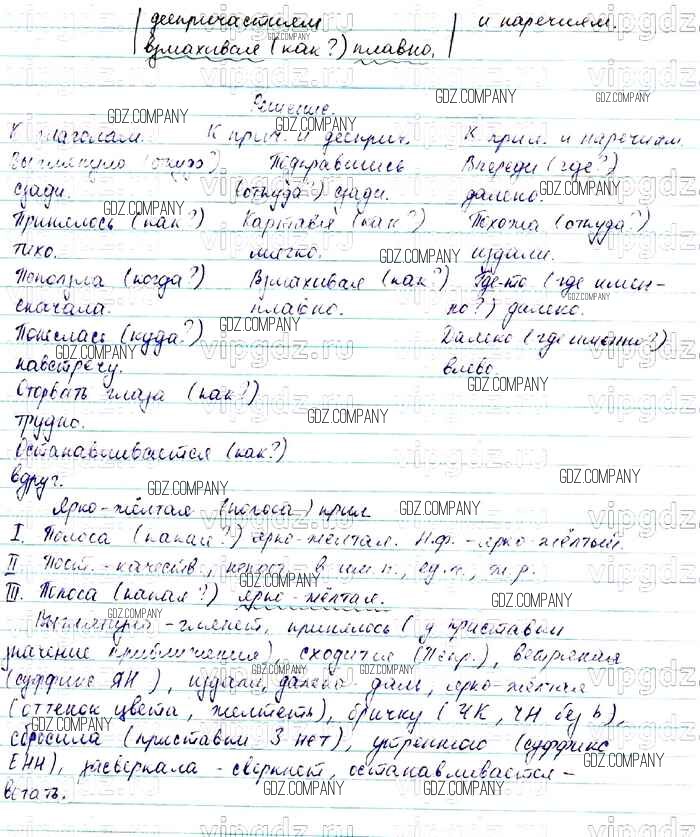 деепричастием и наречием.
взмахивая (как?) плавно.
Решение.
К глаголам. К прич. и дееприч. К прил. и наречиям.
Выглянуло (откуда?) Подкравшись Впереди (где?)
сзади. (откуда?) сзади. далеко.
Принялось (как?) Картавя (как?) Похожа (откуда?)
тихо. мягко. издали.
Поползла (когда?) Взмахивая (как?) Где-то (где имен-
сначала. плавно. но?) далеко.
Понеслась (куда?) Далеко (где именно?)
навстречу. влево.
Оторвать глаза (как?)
трудно.
Останавливается (как?)
вдруг.
Ярко-жёлтая (полоса) прил
I. Полоса (какая?) ярко-жёлтая. Н.ф. - ярко-жёлтый.
II Пост. - качеств., непост. в им.п., ед.ч., ж.р.
III. Полоса (какая?) ярко-жёлтая.
Выглянуло - глянет, принялось (у приставки
значение приближения), сходится (Пер.), ветряная
(суффикс ЯН), издали, далеко - даль, ярко-жёлтая
(оттенок цвета, желтеть), бричку (ЧК, ЧН без ь),
сбросила (приставки З нет), утреннего (суффикс
ЕНН), засверкала - сверкнет, останавливается -
встать.
GDZ.COMPANY
vipgdz.ru